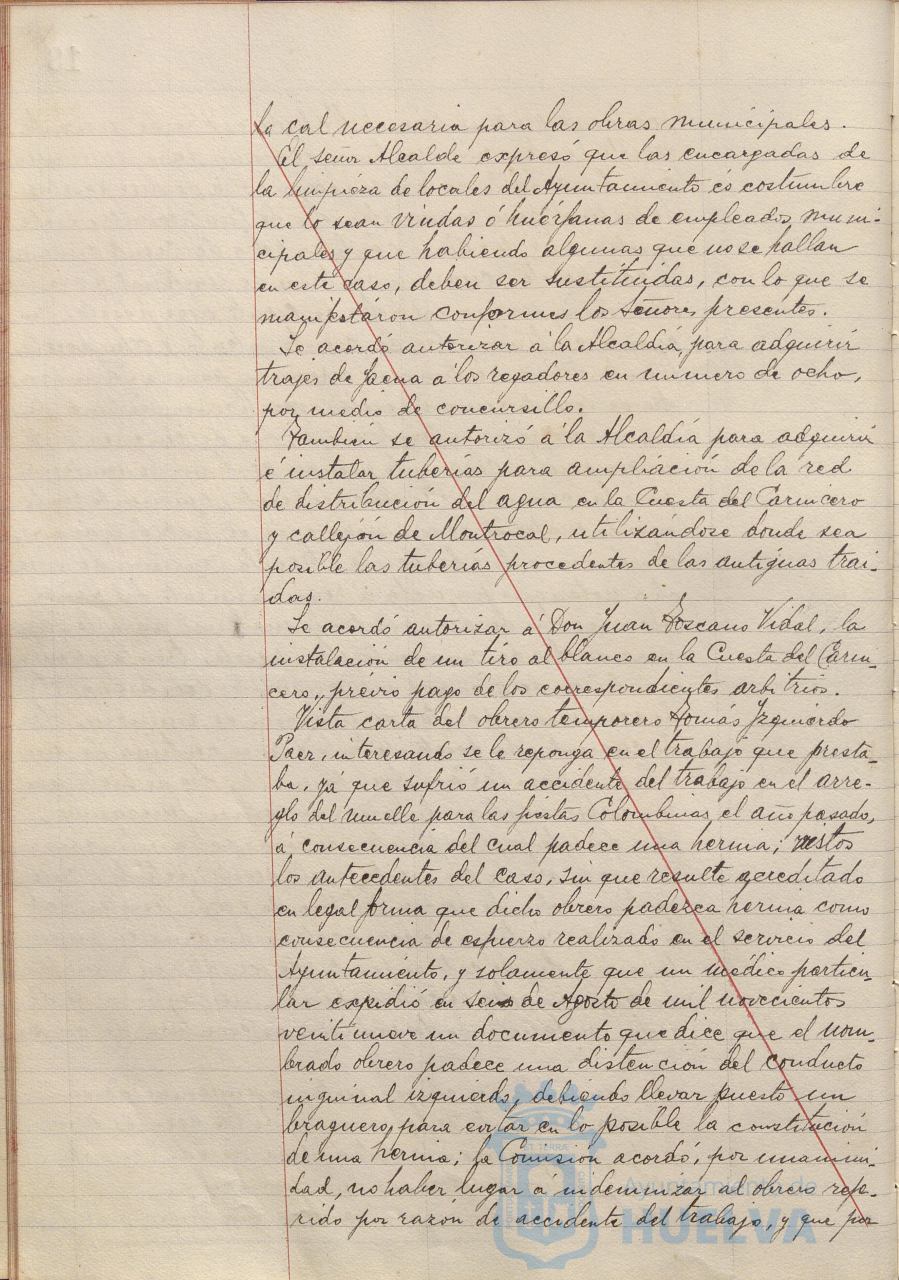 la cal necesaria para las obras municipales.
El señor Alcalde expresó que las encargadas de
la limpieza de locales del Ayuntamiento és costumbre
que lo sean viudas ó huérfanas de empleados muni-
cipales y que habiendo algunas que no se hallan
en este caso, deben ser sustituidas, con lo que se
manifestáron conformes los señores presentes.
Se acordó autorizar á la Alcaldía, para adquirir
trajes de faena á los regadores en número de ocho,
por medio de concursillo.
También se autorizó á la Alcaldía para adquirir
é instalar tuberías para ampliación de la red
de distribución del agua en la Cuesta del Carnicero
y callejón de Montrocal, utilizándose donde sea
posible las tuberías procedentes de las antiguas trai-
das.
Se acordó autorizar á Don Juan Toscano Vidal, la
instalación de un tiro al blanco en la Cuesta del Carni-
cero, prévio pago de los correspondientes arbitrios.
Vista carta del obrero temporero Tomás Izquierdo
interesando se le reponga en el trabajo que presta-
ba, yá que sufrió un accidente del trabajo en el arre-
glo del muelle para las fiestas Colombinas el año pasado,
á consecuencia del cual padece una hernia; vistos
los antecedentes del caso, sin que resulte acreditado
en legal forma que dicho obrero padezca hernia como
consecuencia de esfuerzo realizado en el servicio del
Ayuntamiento, y solamente que un médico particu-
lar expidió en seis de Agosto de mil novecientos
veintinueve un documento que dice que el nom-
brado obrero padece una distención del conducto
inguinal izquierdo, debiendo llevar puesto un
braguero para evitar en lo posible la constitución
de una hernia; la Comisión acordó, por unanimi-
dad, no haber lugar á indemnizar al obrero refe-
rido por razón de accidente del trabajo, y que por
Ayuntamiento de
HUELVA